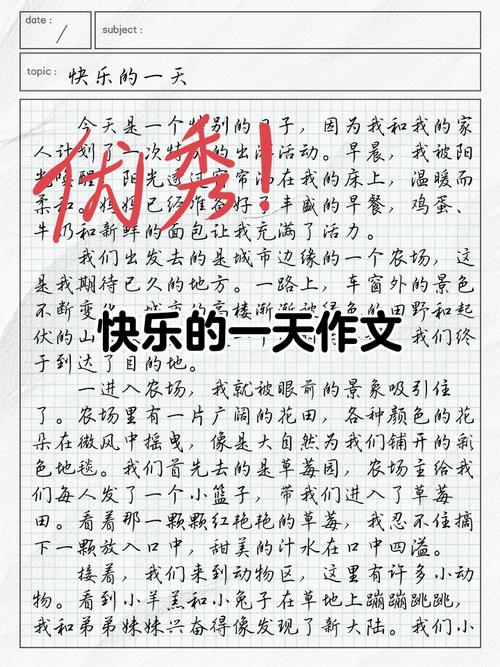 date :
subject :
topic : 快乐的一天
今天是一个特别的日子，因为我和我的家
人计划了一次特别的出游活动。早晨，我被阳
光唤醒，阳光透过窗帘洒在我的床上，温暖而
柔和。妈妈已经准备好了丰盛的早餐，鸡蛋、
牛奶和新鲜的面包让我充满了活力。
优秀！
我们出发去的是城市边缘的一个农场，这
是我期待已久的地方。一路上，车窗外的景色
不断变化，城市的高楼渐渐被绿色的田野和起
伏的山
我们终
快乐的一天作文
于到达了目的地。
一进入农场，我就被眼前的景象吸引住
了。农场里有一片广阔的花田，各种颜色的花
朵在微风中摇曳，像是大自然为我们铺开的彩
色地毯。我们首先去的是草莓园，农场主给我
们每人发了一个小篮子，带我们进入了草莓
田。看着那一颗颗红艳艳的草莓，我忍不住摘
下一颗放入口中，甜美的汁水在口中四溢。
接着，我们来到动物区，这里有许多小动
物。看到小羊羔和小兔子在草地上蹦蹦跳跳，
我和弟弟妹妹兴奋得像发现了新大陆。我们小